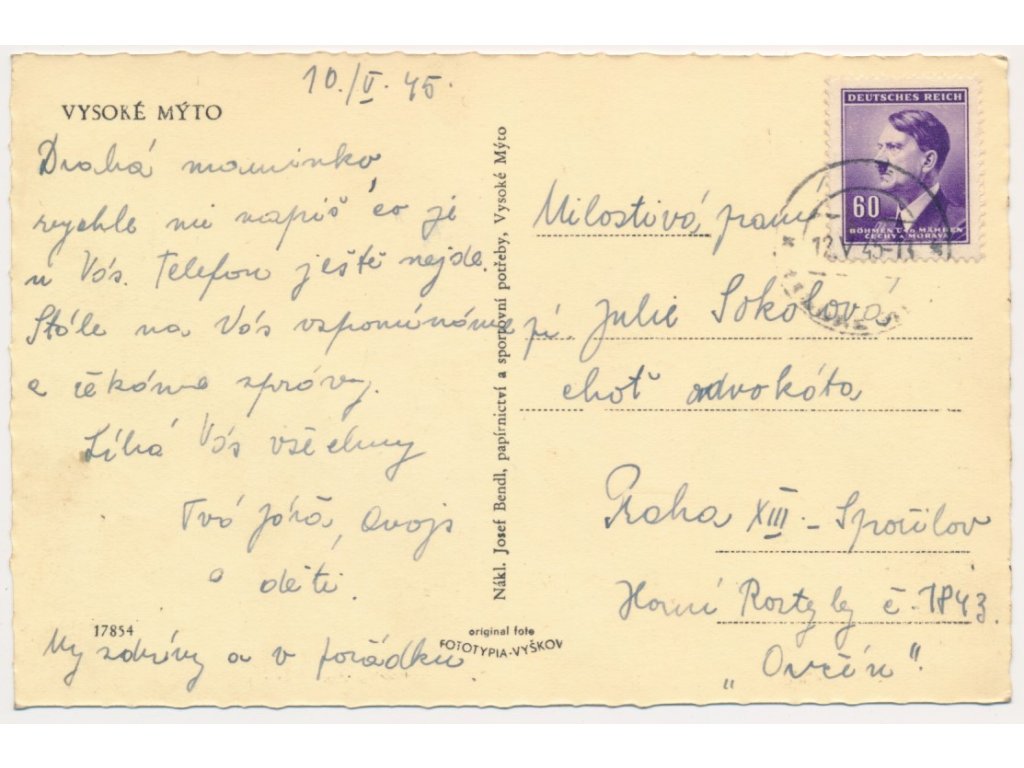 10./V. 45.
VYSOKÉ MÝTO
Drahá maminko
rychle mi napiš co je
u Vás. Telefon ještě nejde.
Stále na Vás vzpomínáme
a čekáme zprávy.
Líbá Vás všechny
Tvá
a děti.
17854
My zdrávy a v pořádku
original foto
FOTOTYPIA-VYŠKOV
Nákl. Josef Bendl, papírnictví a sportovní potřeby, Vysoké Mýto
DEUTSCHES REICH
60
BÖHMEN U. MÄHREN
ČECHY A MORAVA
12.V.45
Milostivá paní
pí. Julie Sokolová
choť advokáta
Praha XIII – Spořilov
Horní Roztyly č. 1843.
„Ovčín".